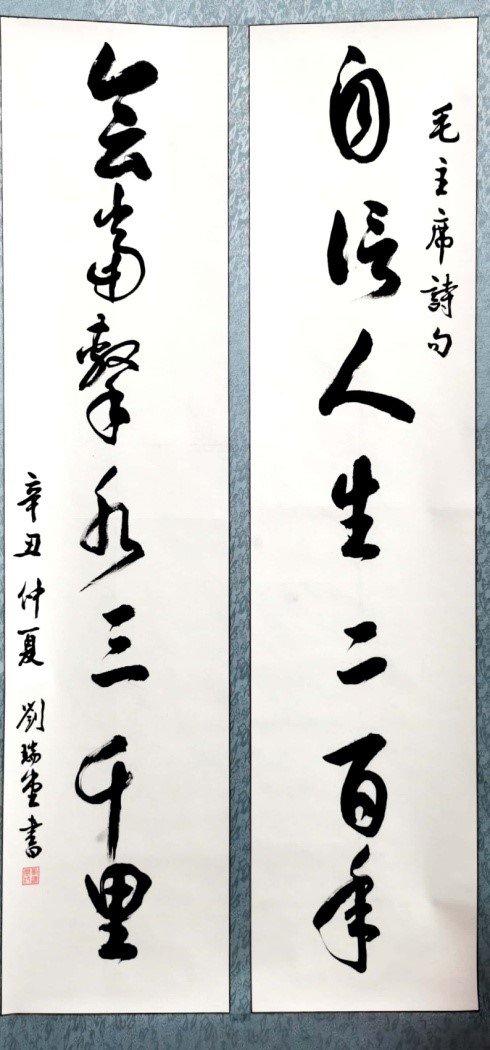 毛主席詩句
自信人生二百年
会當擊水三千里
辛丑仲夏 劉瑞堂書